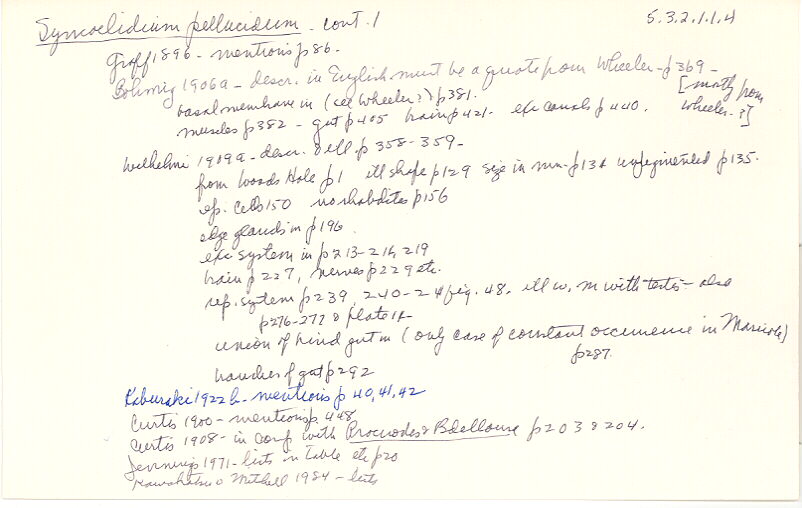 Syncoelidium pellucidum - cont. 1
5.3.2.1.1.4
Graff 1896 - mentions p 86.
Bohmig 1906a - descr. in English must be a quote from Wheeler - p 369 -
[mostly from
basal membrane in (see Wheeler?) p 381.
Wheeler -?]
muscles p 382 - gut p 405 brain p 421 - exc canals p 440.
Wilhelmi 1909a - descr. & ill. p 358-359 -
from Woods Hole p 1 ill shape p 129 size in mm - p 134 unpigmented p 135.
ep. cells 150 no rhabdites p 156
edge glands in p 196
exc system in p 213-216, 219
brain p 227, nerves p 229 etc.
rep. system p 239, 240-2 fig. 48. ill w. m with testis - also
p 276-277 & plate 14
union of hind gut in (only case of constant occurrence in Maricola)
p 287.
branches of gut p 292
Kaburaki 1922b - mentions p 40, 41, 42
Curtis 1900 - mentions p. 448
Curtis 1908 - in comp with Procerodes & Bdelloura p 203 & 204.
Jennings 1971 - lists in table etc p 20
Kawakatsu & Mitchell 1984 - lists